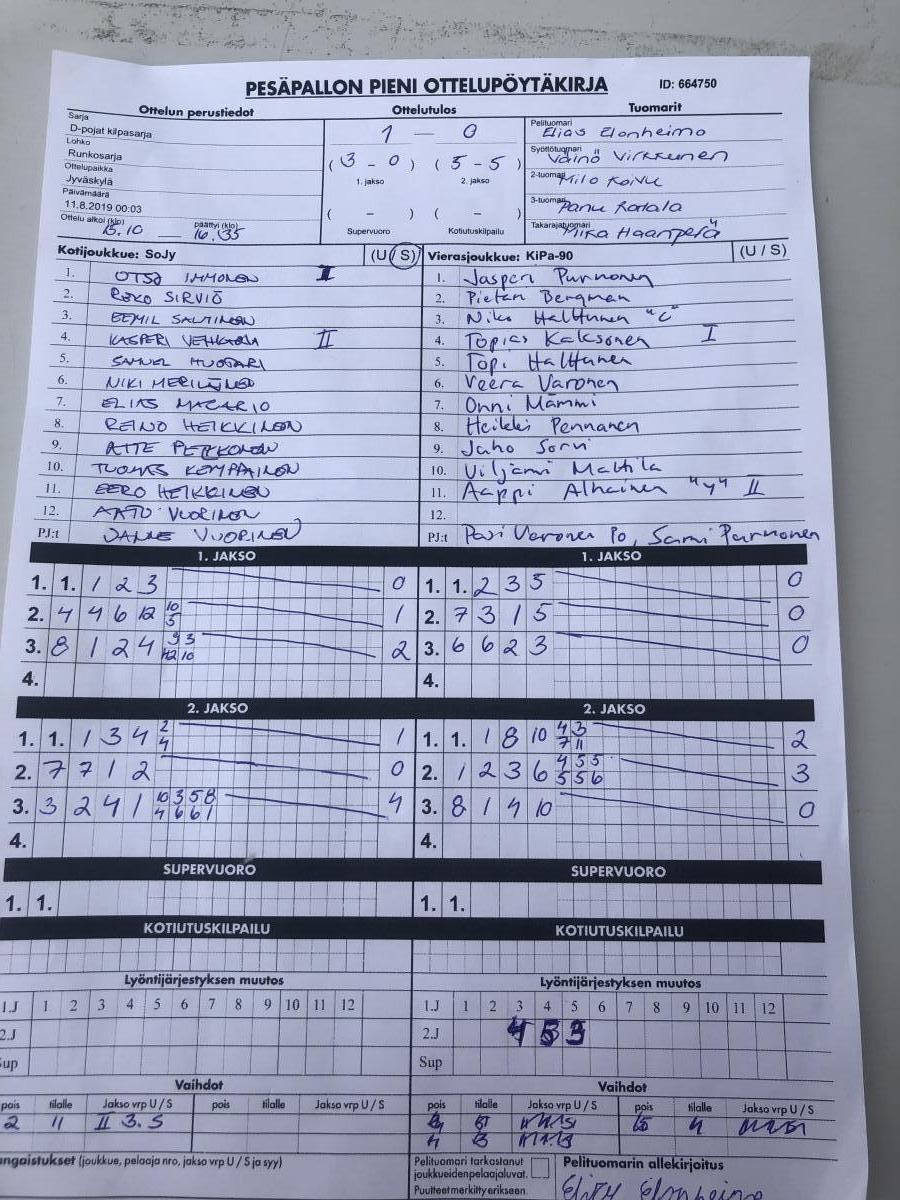 PESÄPALLON PIENI OTTELUPÖYTÄKIRJA ID: 664750
Ottelun perustiedot Ottelutulos Tuomarit
Sarja
D-pojat kilpasarja
Lohko
Runkosarja
Ottelupaikka
Jyväskylä
Päivämäärä
11.8.2019 00:03
Ottelu alkoi (klo) päättyi (klo)
15.10 — 16.35
1 — 0
(3 - 0) (5 - 5)
1. jakso 2. jakso
( - ) ( - )
Supervuoro Kotiutuskilpailu
Pelituomari Elias Elonheimo
Syöttötuomari Väinö Virkkunen
2-tuomari Milo Koivu
3-tuomari Panu
Takarajatuomari Mika Haanperä
Kotijoukkue: SoJy (U / S) Vierasjoukkue: KiPa-90 (U / S)
1. OTSO IMMONEN I 1. Jasperi Purmonen
2. ROKO SIRVIÖ 2. Pietari Bergman
3. EEMIL 3. Niko Halttunen "C"
4. KASPERI II 4. Topias Kaksonen I
5. SAMUEL HUOTARI 5. Topi Halttunen
6. NIKI MERILÄINEN 6. Veera Varonen
7. ELIAS MACARIO 7. Onni Mämmi
8. REINO HEIKKINEN 8. Heikki Pennanen
9. PEKKONEN 9. Juho Sorvi
10. TUOMAS KEMPPAINEN 10. Viljami Mattila
11. EERO HEIKKINEN 11. Aappi Alhainen "y" II
12. AATU VUORINEN 12.
PJ:t JANNE VUORINEN PJ:t Pasi Varonen Po, Sami Purmonen
1. JAKSO 1. JAKSO
1. 1. 1 2 3 0 1. 1. 2 3 5 0
2. 4 4 6 12 10 5 1 2. 7 3 1 5 0
3. 8 1 2 4 9 3 12 10 2 3. 6 6 2 3 0
4. 4.
2. JAKSO 2. JAKSO
1. 1. 1 3 4 2 4 1 1. 1. 1 8 10 4 3 7 11 2
2. 7 7 1 2 0 2. 1 2 3 6 4 5 5 5 5 6 3
3. 3 2 4 1 10 3 5 8 4 6 6 1 4 3. 8 1 4 10 0
4. 4.
SUPERVUORO SUPERVUORO
1. 1. 1. 1.
KOTIUTUSKILPAILU KOTIUTUSKILPAILU
Lyöntijärjestyksen muutos Lyöntijärjestyksen muutos
1.J 1 2 3 4 5 6 7 8 9 10 11 12 1.J 1 2 3 4 5 6 7 8 9 10 11 12
2.J 2.J 4 5 3
Sup Sup
Vaihdot Vaihdot
pois tilalle Jakso vrp U / S pois tilalle Jakso vrp U / S pois tilalle Jakso vrp U / S pois tilalle Jakso vrp U / S
2 11 II 3. S
ngaistukset (joukkue, pelaaja nro, jakso vrp U / S ja syy)
Pelituomari tarkastanut
joukkueidenpelaajaluvat.
Puutteet merkitty erikseen.
Pelituomarin allekirjoitus
Elias Elonheimo